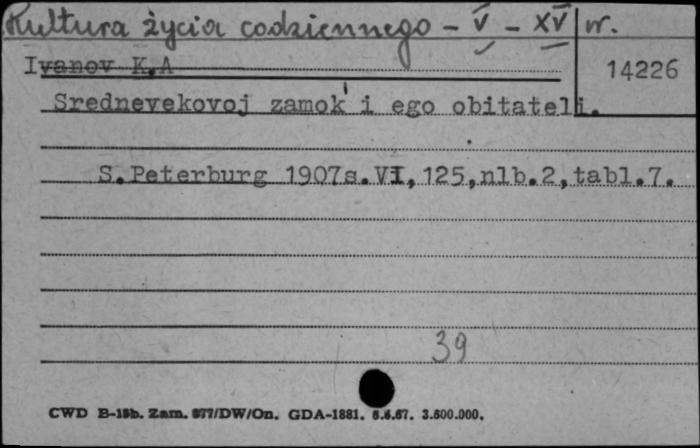 Kultura życia codziennego - V - XV w.
Ivanov K.A
14226
Srednevekovoj zamok' i ego obitateli.
S.Peterburg 1907s.VI,125,nlb.2,tabl.7.
39
CWD B-15b. Zam. 877/DW/On. GDA-1881. 6.6.67. 3.500.000.